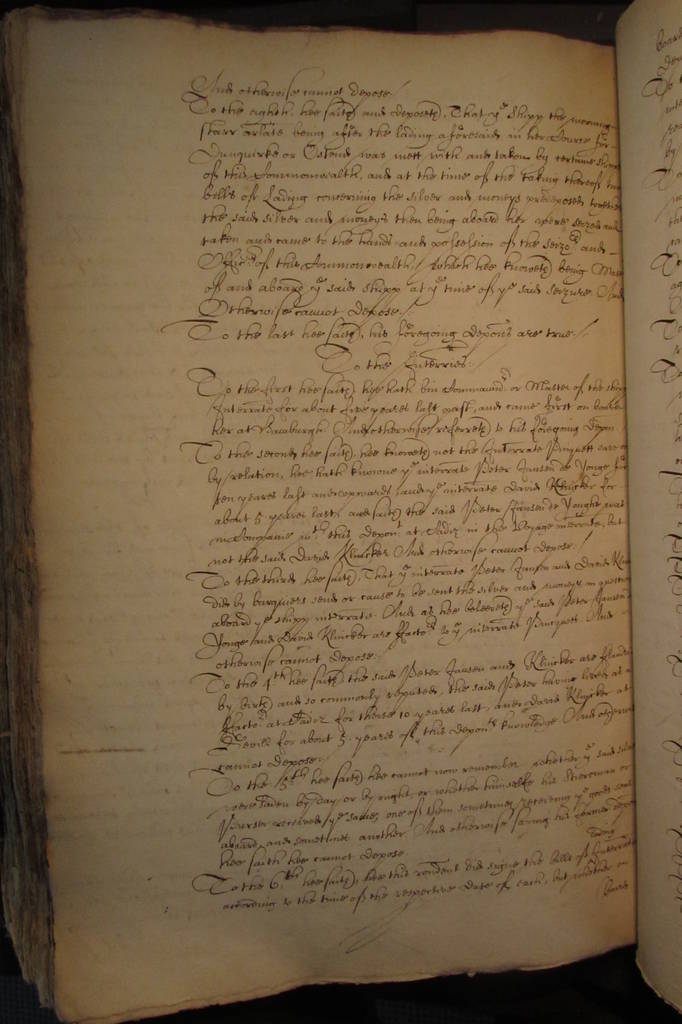 And otherwise cannot depose./
To the eighth hee saith and deposeth, That ye shipp the morning
starr arlate being after the lading aforesaid in her Course for
Dunquirke or Ostend was mett with and taken by certaine shipps
of this Commonwealth, and at the time of the taking thereof the
bills of Lading concerning the silver and moneys predeposed together
the said silver and moneys then being aboard her were seized and
taken and came to the hands and possession of the and
Officers of this Commonwealth./ Which hee knoweth being Master
of and aboard ye said shipp at ye time of ye said seizure. And
Otherwise cannot depose./
To the last hee saith, his foregoing deposns are true./
To the Interries:
To the first hee saith, hee hath bin Commandr or Master of the shipp
Interrate for about five yeares last past, and came first on board
her at Hamburgh. And otherwise referreth to his foregoing deposn
To the second hee saith, hee knoweth not the Interrate
by relation, hee hath knowne ye interrate Peter Jansen de Jonge for
ten yeares last and upwards and ye interrate David Klincker for
about 5 yeares last, and saith the said Peter Jansen de Jonghe was
in Companie wth this deponent at Cadiz in the voyage interrate, but
not the said David Klincker And otherwise cannot depose./
To the third hee saith, That ye interrate Peter Jansen and David Klincker
did by send or cause to be sent the silver and moneys in question
aboard ye shipp interrate. And as hee beleeveth ye said Peter Jansen de
Jonge and David Klincker are Factors to ye interrate And
otherwise cannot depose.
To the 4th hee saith the said Peter Jansen and Klincker are
by birth and so commonly reputed, the said Peter having lived as a
Factor at Cadiz for these 10 yeares last, and David Klincker at
Sevill for about 5 yeares of this deponts knowledge. And otherwise
cannot depose./
To the 5th hee saith hee cannot now remember whether ye said silver
were laden by day or by night or whether himselfe his Steersman or
Purser received ye same, one of them sometimes receiving ye goods
aboard and sometimes another. And otherwise saving his former deposn
hee saith hee cannot depose
To the 6th hee saith, hee this rendent did signe the bills of lading Interrate
according to the time of the respective date of each, but whether